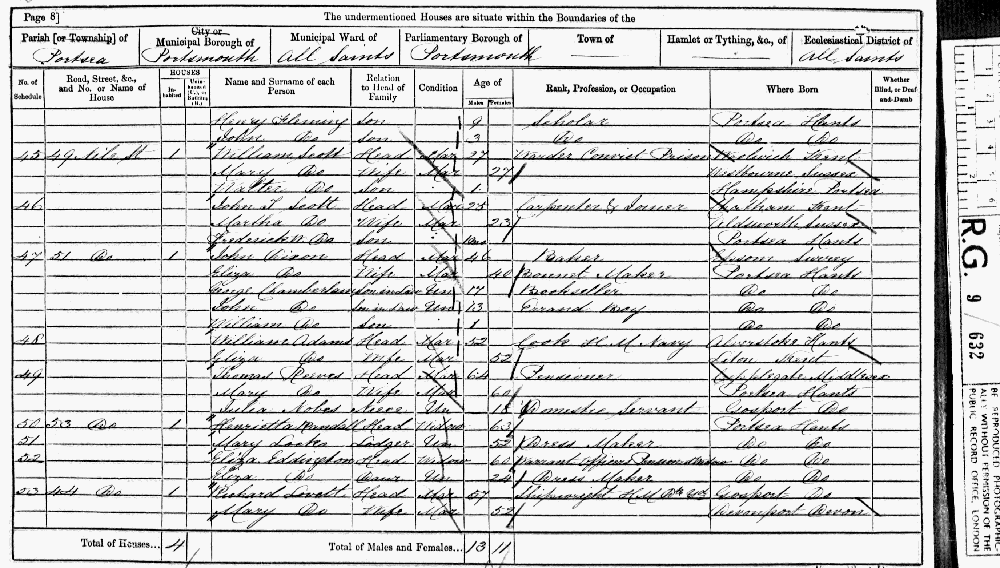 Page 8]
The undermentioned Houses are situate within the Boundaries of the
Parish [or Township] of
City or Municipal Borough of
Municipal Ward of
Parliamentary Borough of
Town of
Hamlet or Tything, &c., of
Ecclesiastical District of
Portsea
Portsmouth
All Saints
Portsmouth
All Saints
No. of Schedule
Road, Street, &c., and No. or Name of House
HOUSES
Inhabited
Name and Surname of each Person
Relation to Head of Family
Condition
Age of
Males
Females
Rank, Profession, or Occupation
Where Born
Whether Blind, or Deaf and Dumb
Henry Fleming Son 9 Scholar Portsea Hants
John Do Son 3 Do Do Do
45 49 Nile St 1 William Scott Head Mar 37 Warder Convict Prison Woolwich Kent
Mary Do Wife Mar 27 Westbourne Sussex
Walter Do Son 1 Hampshire Portsea
46 John T Scott Head Mar 25 Carpenter & Joiner Kent
Martha Do Wife Mar 23 Aldsworth Sussex
Frederick W Do Son Portsea Hants
47 51 Do 1 John Head Mar 46 Baker Surrey
Eliza Do Wife Mar 40 Bonnet Maker Portsea Hants
George Chamberlain Son in law Un 17 Bookseller Do Do
John Do Son in law Un 13 Errand Boy Do Do
William Do Son 1 Do Do
48 William Adams Head Mar 52 Cook H M Navy Alverstoke Hants
Eliza Do Wife Mar 52 Kent
49 Thomas Reeves Head Mar 64 Pensioner Middlesex
Mary Do Wife Mar 60 Portsea Hants
Julia Nobes Niece Un 18 Domestic Servant Gosport Do
50 53 Do 1 Henrietta Head Widow 63 Portsea Hants
51 Mary Lodger Un 52 Dress Maker Do Do
52 Eliza Eddington Head Widow 60 Warrant Officers Pension Widow Do Do
Eliza Do Daur Un 24 Dress Maker Do Do
53 44 Do 1 Richard Lovett Head Mar 57 Shipwright H M Gosport Do
Mary Do Wife Mar 52 Devonport Devon
Total of Houses... 4
Total of Males and Females... 13 11
R.G. 9/632
BE REPRODUCED PHOTOGRAPHIC-
ALLY WITHOUT PERMISSION OF THE
PUBLIC RECORD OFFICE, LONDON